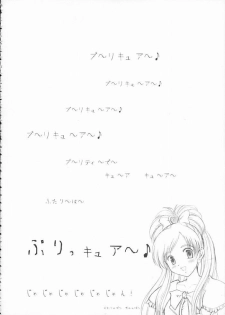 プ～リキュア～♪
プ～リキュア～♪
プ～リキュア～♪
プ～リキュア～♪
プ～リティ～で～
キュ～ア　キュ～ア～
ふたり～は～
ぷりっキュア～♪
じゃじゃじゃじゃじゃん！